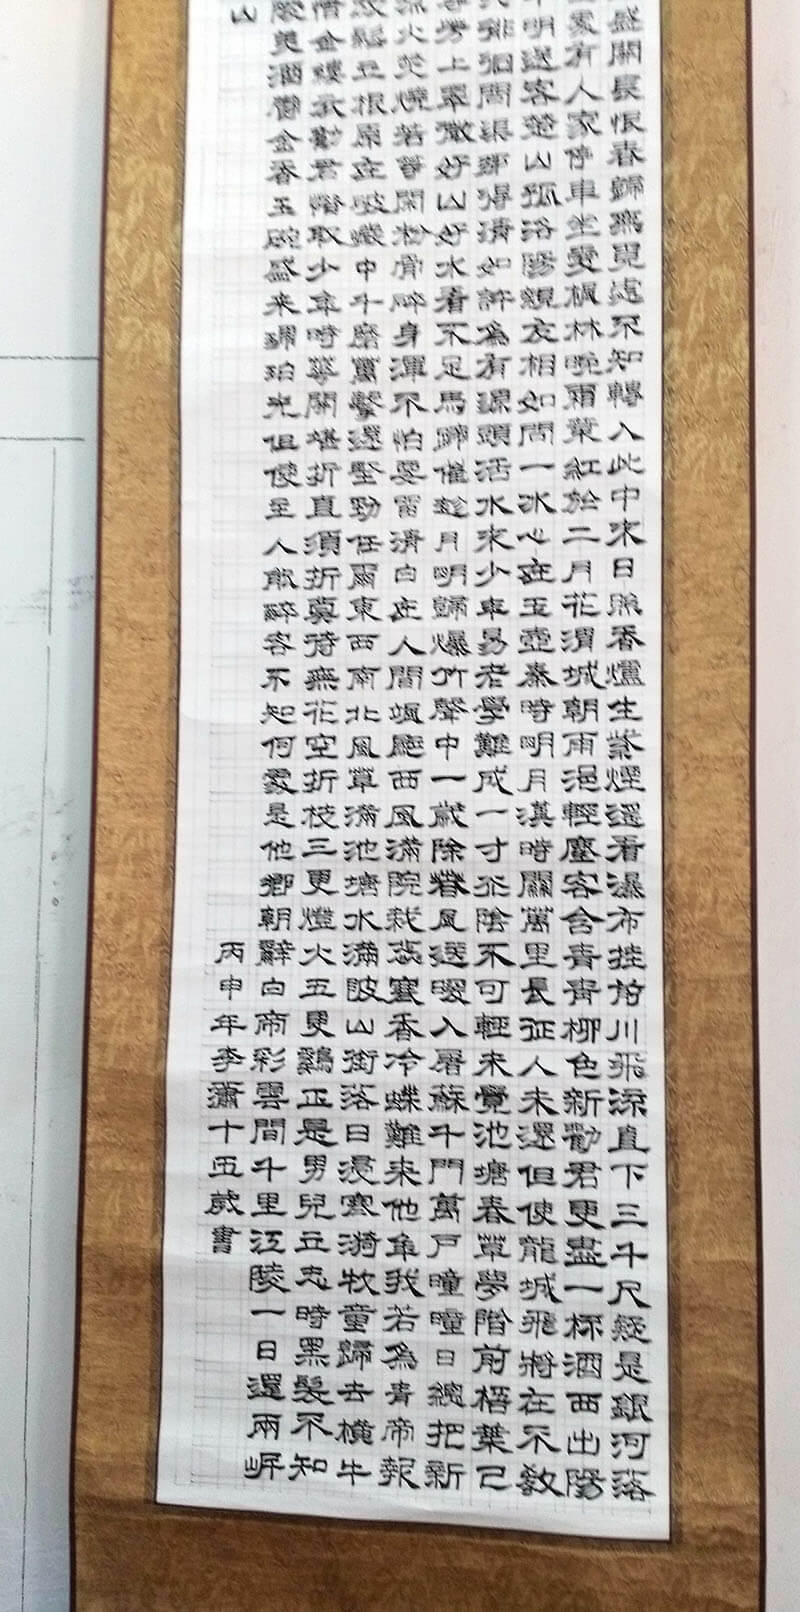 盛開長恨春歸無覓處不知轉入此中來日照香爐生紫煙遥看瀑布挂前川飛流直下三千尺疑是銀河落
處有人家停車坐愛楓林晚霜葉紅於二月花渭城朝雨浥輕塵客舍青青柳色新勸君更盡一杯酒西出陽
明送客楚山孤洛陽親友相如問一冰心在玉壺秦時明月漢時關萬里長征人未還但使龍城飛將在不教
徘徊問渠那得清如許為有源頭活水來少年易老學難成一寸光陰不可輕未覺池塘春草夢階前梧葉已
尋芳上翠微好山好水看不足馬蹄催趁月明歸爆竹聲中一歲除春風送暖入屠蘇千門萬戶曈曈日總把新
火焚燒若等閑粉骨碎身渾不怕要留清白在人間颯颯西風滿院栽蕊寒香冷蝶難来他年我若為青帝報
鬆立根原在破巖中千磨萬擊還堅勁任爾東西南北風草滿池塘水滿陂山銜落日浸寒漪牧童歸去橫牛
惜金縷衣勸君惜取少年時華開堪折直須折莫待無花空折枝三更燈火五更鷄正是男兒立志時黑髮不知
陵美酒鬱金香玉碗盛来琥珀光但使主人能醉客不知何處是他鄉朝辭白帝彩雲間千里江陵一日還兩岸
山
丙申年李瀟十五歲書